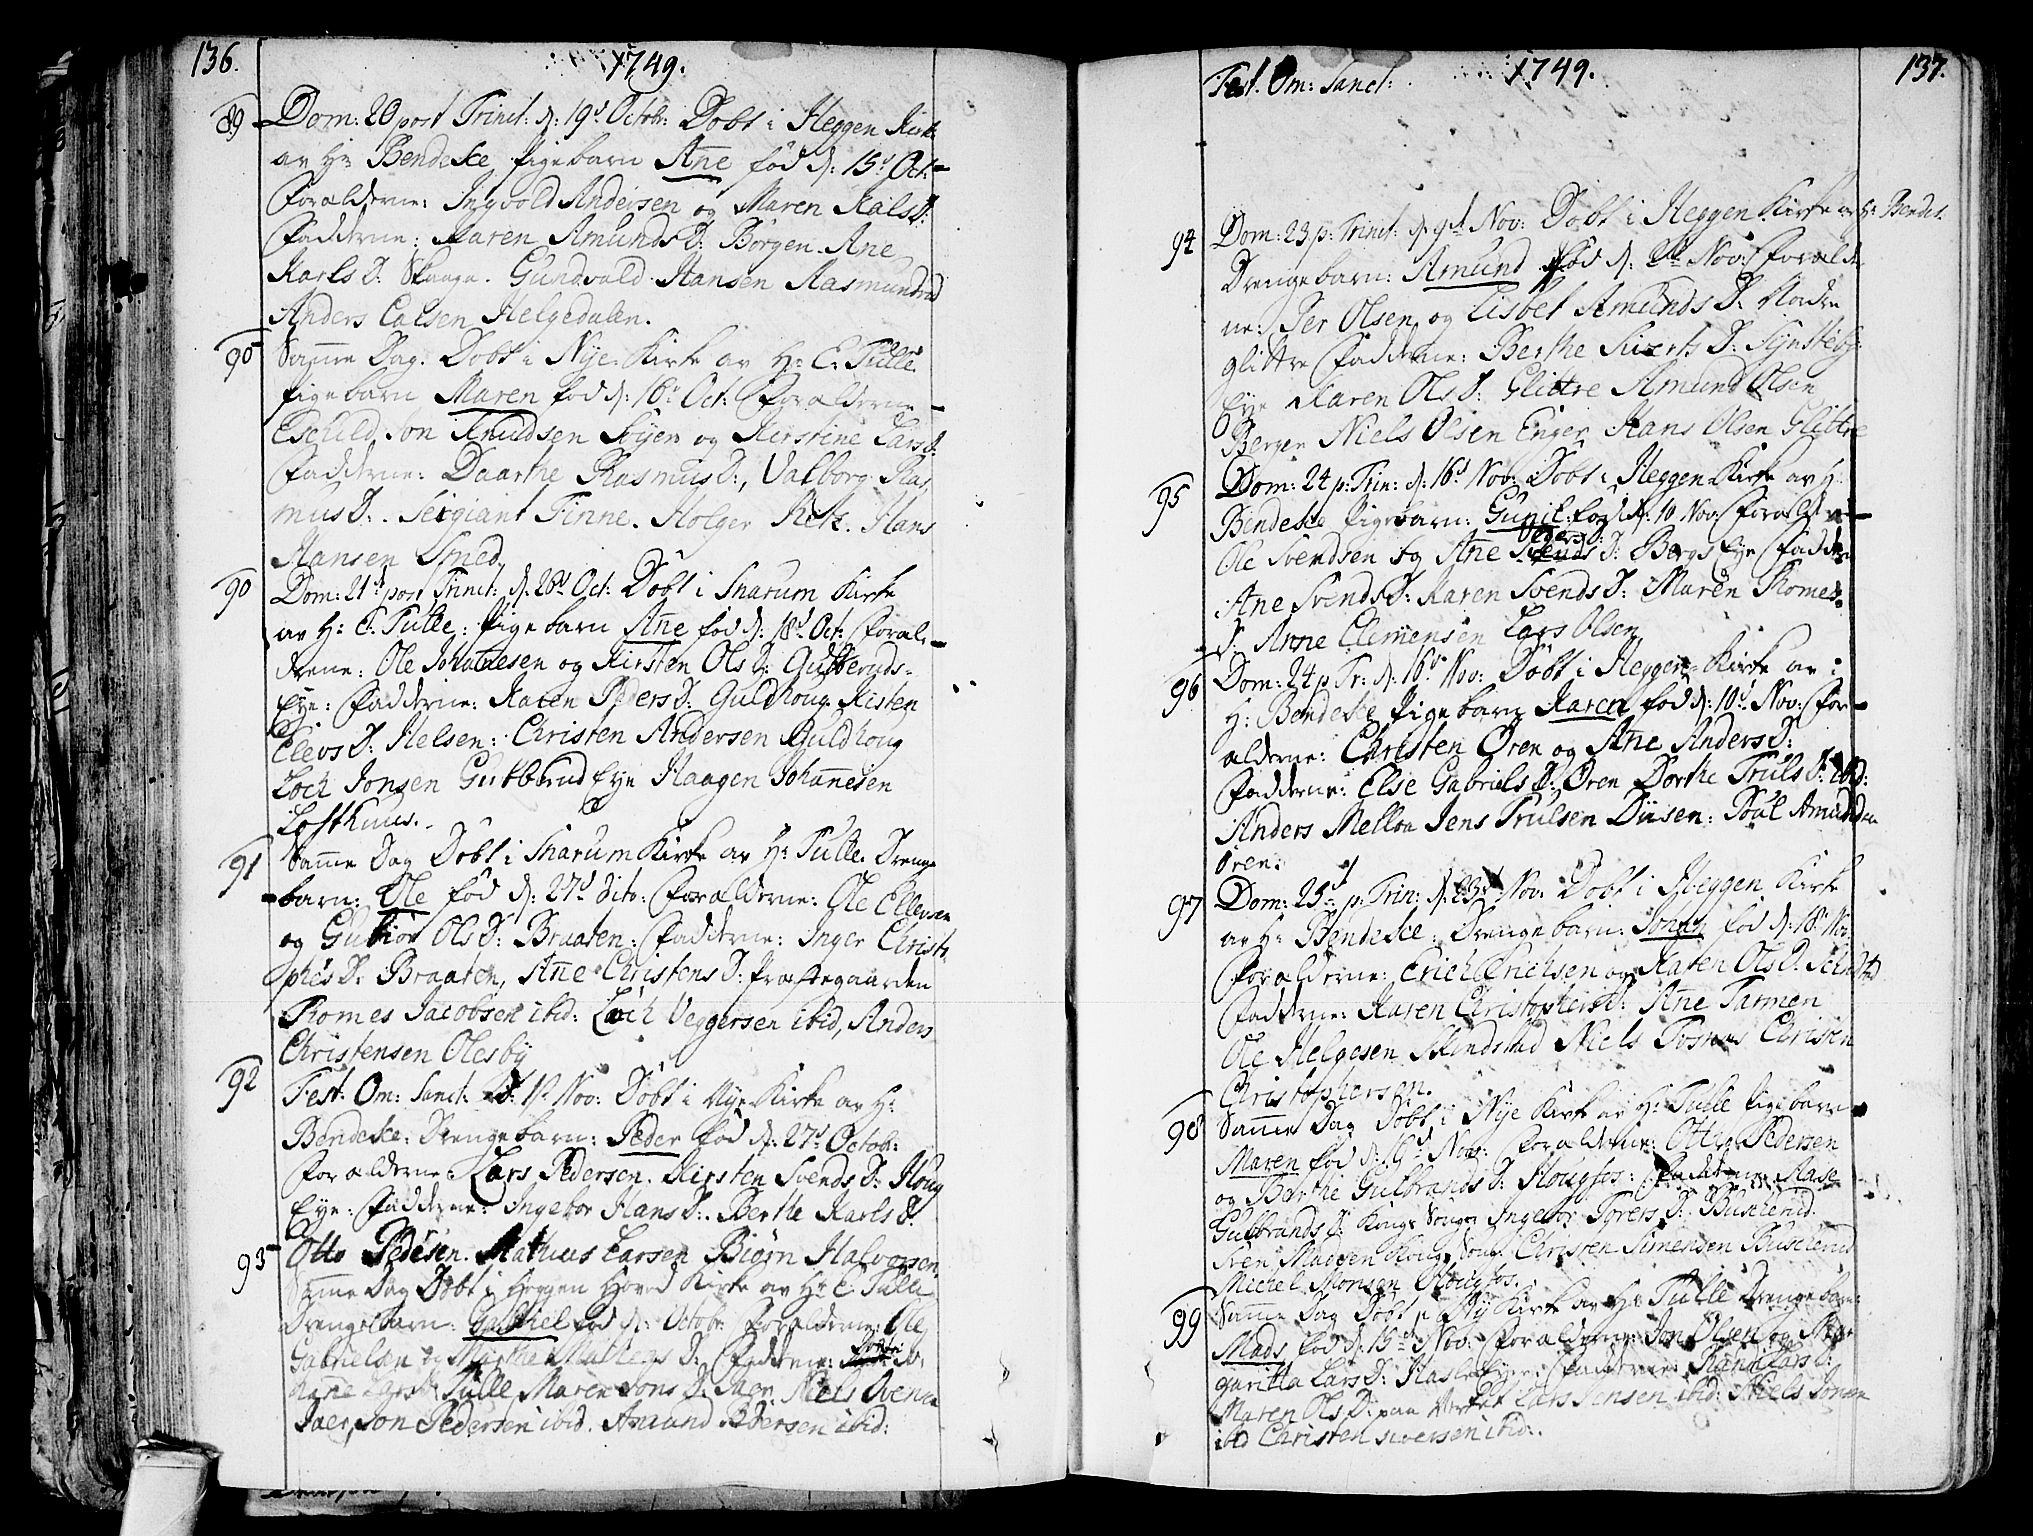 136.
1749.
89 Dom: 20 post Trinct: d: 19d Octobr: Döbt i Heggen Kirke
av Hr Bendeke Pigebarn Ane föd d: 15d Oct:
Forælderne: Ingvold Andersen og Maren KalsD:
Fadderne: Karen AmundsD: Börgen. Ane
KarlsD: Skaaga. Gundvald Hansen Aasmundrud
Anders Calsen Helgedalen.
90 Samme Dag. Döbt i Nye Kirke av Hr E. Tulle
Pigebarn Maren föd d: 16d Oct: Forælderne
Eschild Jon Knudsen og Kirstine LarsD:
Fadderne: Daarthe RasmusD:, Valborg Ras
musD:. Sergiant Finne. Holger Hans
Hansen Smed.
90 Dom: 21d post Trinct: d: 26d Oct: Döbt i Snarum Kirke
av Hr E. Tulle: Pigebarn Ane föd d: 18d Oct: Foræl
drene: Ole Johannesen og Kirsten OlsD: Gulberuds
Eye: Fadderne: Karen PedersD: Guldhoug Kisten
ElevsD: Helsen: Christen Andersen Guldhoug
Loch Jonsen Gukberud Eye Haagen Johanesen
Lofthuus.
91 Samme Dag Döbt i Snarum Kirke av Hr Tulle. Drenge
barn: Ole föd d: 27d dito: Forælderne: Ole Ellevsen
og Gubiör OlsD: Braaten: Fadderne: Inger Christo
phesD: Braaten, Ane ChristensD: Præstegaarden
Thomes Jacobsen ibid: Loch Veggersen ibid, Anders
Christensen Olesby
92 Fest: Om: Sanct: d: 1d Nov: Döbt i Nye Kirke av Hr
Bendeke: Drengebarn: Peder föd d: 27d Octobr:
Forælderne: Lars Pedersen. Kirsten SvendsD: Houg
Eye: Fadderne: Ingebor HansD:. Berthe KarlsD:
Otto Pedesen. Mathues Larsen Biörn Halvorsen
93 Samme Dag Döbt i Heggen Hoved Kirke av Hr E Tulle
Drengebarn: Gabriel föd d: Octobr Forælderne: Ole
Gabrielsen og Marthe D: Fadderne:
Tulle Maren JonsD: Niels Svens
Jaer, Jon Pedersen ibid. Amund Pedersen ibid:
Fest. Om: Sanct:
1749.
137.
94 Dom: 23 p: Trinct: d: 9d Nov: Döbt i Heggen Kirke av Hr Bendek:
Drengebarn: Amund föd d: 2d Nov: Foræld
ne: Per Olsen og Lisbet AmundsD: Nadre
glittre Fadderne: Berthe SivertsD: Synsteby
Eye Karen OlsD: Glittre Amund Olsen
Bergen Niels Olsen Enger Hans Olsen Glittre
95 Dom: 24 p: Trin: d: 16d Nov: Döbt i Heggen Kirke av H
Bendeke Pigebarn: Gunil: föd d: 10 Nov: Forælder
Ole Svendsen og Ane PedersD: Bergs Eye Fadder
Ane SvendsD: Karen SvendsD: Maren Thomes
D: Anne Clemensen Lars Olsen
96 Dom: 24 p Tr: d: 16d Nov: Döbt i Heggen Kirke av
H: Bendeke Pigebarn Karen föd d: 10d Nov: For
ælderne: Christen Ören og Ane AndersD:
Fadderne: Else GabrielsD: Ören Dorthe TrulsD: ibid:
Anders Mellom Jens Trulsen Diisen: Poul Amundsen
Ören:
97 Dom: 25d p: Trin: d: 23d Nov: Döbt i Heggen Kirke
av Hr Bendeke: Drengebarn: Johan föd d: 18d Nov:
Forælderne: Erich Erichsen og Karen OlsD:
Fadderne: Karen ChristophersD: Ane Tarmen
Ole Helgesen Skindstad Niels Christen
Christophersen.
98 Samme Dag Döbt i Nye Kirke av Hr Tulle Pigebarn
Maren föd d: Nov: Forælderne: Otto Pedersen
og Berthe GulbrandsD: Hougfos: Fadderne: Aase
GulbrandsD: Kongs Ingebor TyrersD: Buscherud
Sven Madsen Christen Simensen Buscherud
Michel Monsen Hougfos.
99 Samme Dag Döbt i Nye Kirke av Hr Tulle Drengebarn:
Mads föd d: 15d Nov: Forælderne: Jon Olsen og Mar
garitta LarsD: Hasle Eye: Fadderne: LarsD:
Maren OlsD: paa Verket Lars Jensen ibid: Niels Jonsen
ibid Christen siversen ibid:.